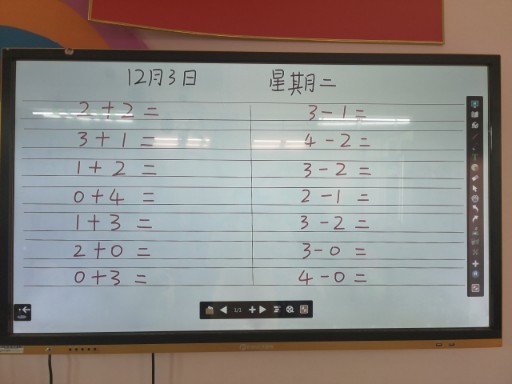 12月3日 星期二
2+2= 3-1=
3+1= 4-2=
1+2= 3-2=
0+4= 2-1=
1+3= 3-2=
2+0= 3-0=
0+3= 4-0=
1/1